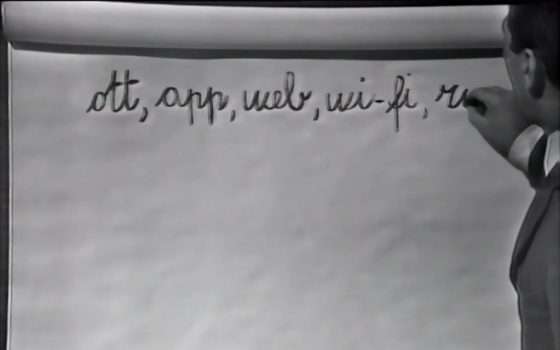 ott, app, web, wi-fi,